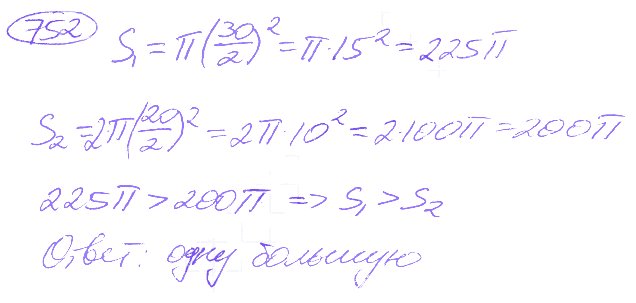 752 S₁ = π(30/2)² = π·15² = 225π
S₂ = 2π(20/2)² = 2π·10² = 2·100π = 200π
225π > 200π => S₁ > S₂
Ответ: одну большую